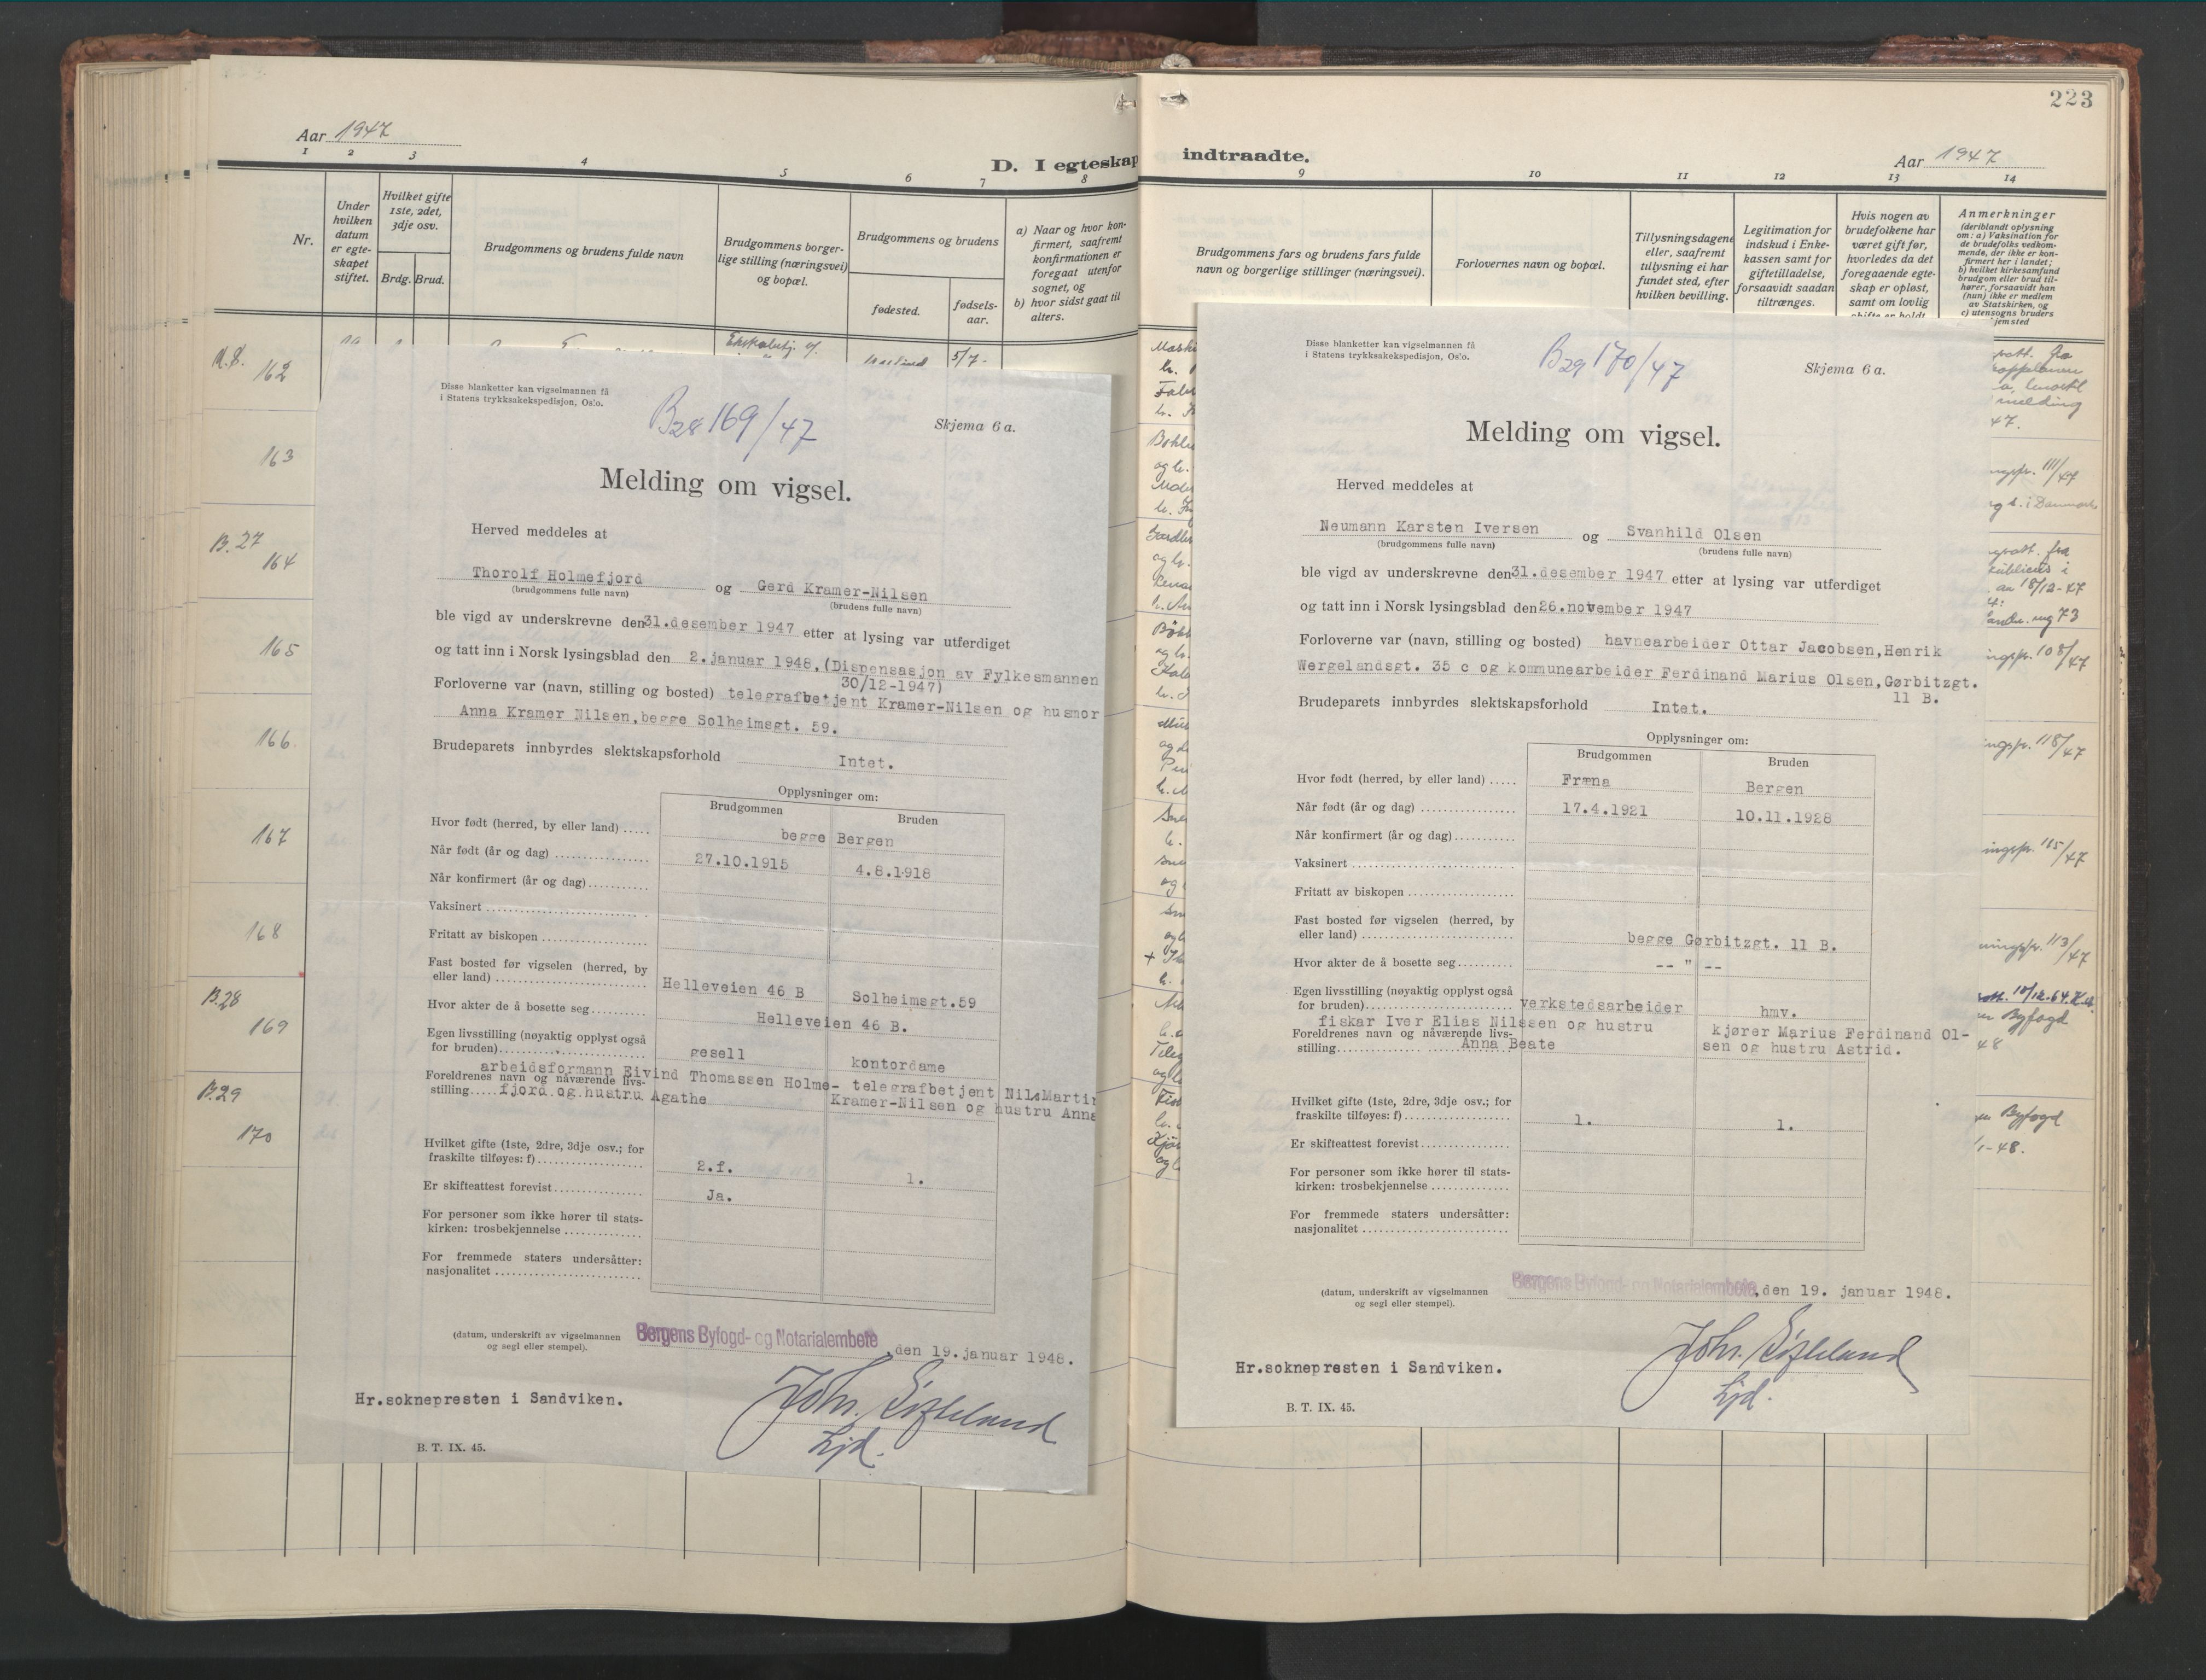 Aar 1947
1 2 3 4 5 6 7 8
D. I egteskap
Nr.
Under hvilken datum er egte-skapet stiftet.
Hvilket gifte 1ste, 2det, 3dje osv.
Brdg. Brud.
Brudgommens og brudens fulde navn
Brudgommens borger-lige stilling (næringsvei) og bopæl.
Brudgommens og brudens
fødested.
fødsels-aar.
a) Naar og hvor kon-firmert, saafremt konfirmationen er foregaat utenfor sognet, og
b) hvor sidst gaat til alters.
162
163
B.27
164
165
166.
167
168
B.28
169
B.29
170
Disse blanketter kan vigselmannen få
i Statens trykksakekspedisjon, Oslo.
B28 169/47
Skjema 6 a.
Melding om vigsel.
Herved meddeles at
Thorolf Holmefjord og Gerd Kramer-Nilsen
(brudgommens fulle navn) (brudens fulle navn)
ble vigd av underskrevne den 31.desember 1947 etter at lysing var utferdiget
og tatt inn i Norsk lysingsblad den 2.januar 1948.(Dispensasjon av Fylkesmannen
30/12-1947)
Forloverne var (navn, stilling og bosted) telegrafbetjent Kramer-Nilsen og husmor
Anna Kramer Nilsen,begge Solheimsgt. 59.
Brudeparets innbyrdes slektskapsforhold Intet.
Opplysninger om:
Brudgommen Bruden
Hvor født (herred, by eller land) ..... begge Bergen
Når født (år og dag) ................ 27.10.1915 4.8.1918
Når konfirmert (år og dag)..........
Vaksinert ...........................
Fritatt av biskopen ..................
Fast bosted før vigselen (herred, by
eller land) ........................... Helleveien 46 B Solheimsgt.59
Hvor akter de å bosette seg.......... Helleveien 46 B.
Egen livsstilling (nøyaktig opplyst også
for bruden)........................... gesell kontordame
arbeidsformann Eivind Thomassen Holme- telegrafbetjent Nils Martin
Foreldrenes navn og nåværende livs-
stilling..... fjord og hustru Agathe Kramer-Nilsen og hustru Anna
Hvilket gifte (1ste, 2dre, 3dje osv.; for
fraskilte tilføyes: f).................. 2.f. 1.
Er skifteattest forevist............... Ja.
For personer som ikke hører til stats-
kirken: trosbekjennelse .............
For fremmede staters undersåtter:
nasjonalitet .........................
(datum, underskrift av vigselmannen
og segl eller stempel).
Bergens Byfogd- og Notarialembete, den 19.januar 1948.
Hr.soknepresten i Sandviken.
B. T. IX. 45.
223
indtraadte.
Aar 1947
9 10 11 12 13 14
Brudgommens fars og brudens fars fulde navn og borgerlige stillinger (næringsvei).
Forlovernes navn og bopæl.
Tillysningsdagene eller, saafremt tillysning ei har fundet sted, efter hvilken bevilling.
Legitimation for indskud i Enke-kassen samt for giftetilladelse, forsaavidt saadan tiltrænges.
Hvis nogen av brudefolkene har været gift før, hvorledes da det foregaaende egte-skap er opløst, samt om lovlig skifte er holdt
Anmerkninger
(deriblandt oplysning om: a) Vaksination for de brudefolks vedkom-mende, der ikke er kon-firmert her i landet; b) hvilket kirkesamfund brudgom eller brud til-hører, forsaavidt han (hun) ikke er medlem av Statskirken, og c) utensogns bruders hjemsted
Disse blanketter kan vigselmannen få
i Statens trykksakekspedisjon, Oslo.
B29 170/47
Skjema 6 a.
Melding om vigsel.
Herved meddeles at
Neumann Karsten Iversen og Svanhild Olsen
(brudgommens fulle navn) (brudens fulle navn)
ble vigd av underskrevne den 31.desember 1947 etter at lysing var utferdiget
og tatt inn i Norsk lysingsblad den 26.november 1947
Forloverne var (navn, stilling og bosted) havnearbeider Ottar Jacobsen,Henrik
Wergelandsgt. 35 c og kommunearbeider Ferdinand Marius Olsen,Gørbitzgt.
11 B.
Brudeparets innbyrdes slektskapsforhold Intet.
Opplysninger om:
Brudgommen Bruden
Hvor født (herred, by eller land) ..... Fræna Bergen
Når født (år og dag) ................ 17.4.1921 10.11.1928
Når konfirmert (år og dag)..........
Vaksinert ...........................
Fritatt av biskopen ..................
Fast bosted før vigselen (herred, by
eller land) ........................... begge Gørbitzgt. 11 B.
Hvor akter de å bosette seg.......... -- " --
Egen livsstilling (nøyaktig opplyst også
for bruden)........................... verkstedsarbeider hmv.
fiskar Iver Elias Nilssen og hustru kjører Marius Ferdinand Ol-
Foreldrenes navn og nåværende livs-
stilling............ Anna Beate sen og hustru Astrid.
Hvilket gifte (1ste, 2dre, 3dje osv.; for
fraskilte tilføyes: f).................. 1. 1.
Er skifteattest forevist...............
For personer som ikke hører til stats-
kirken: trosbekjennelse .............
For fremmede staters undersåtter:
nasjonalitet .........................
(datum, underskrift av vigselmannen
og segl eller stempel).
Bergens Byfogd- og Notarialembete, den 19. januar 1948.
Hr.soknepresten i Sandviken.
B. T. IX. 45.
111/47
i Danmark
18/12-47
108/47
118/47
113/47
Byfogd
48
Byfogd
1-48.